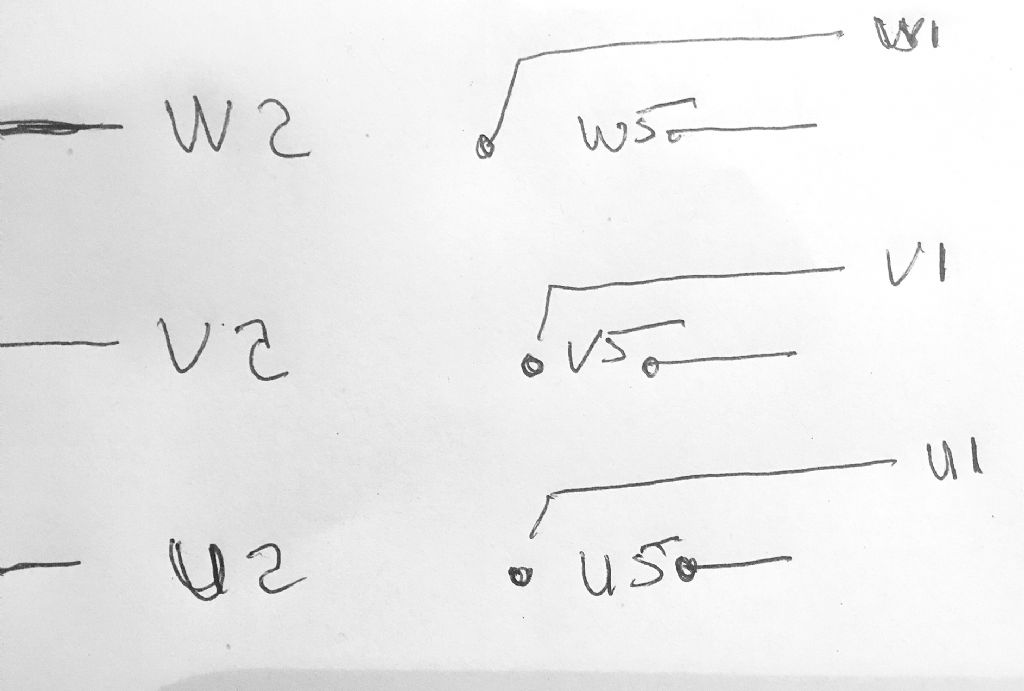 W1
W2 W5
V1
V2 V5
U1
U2 U5